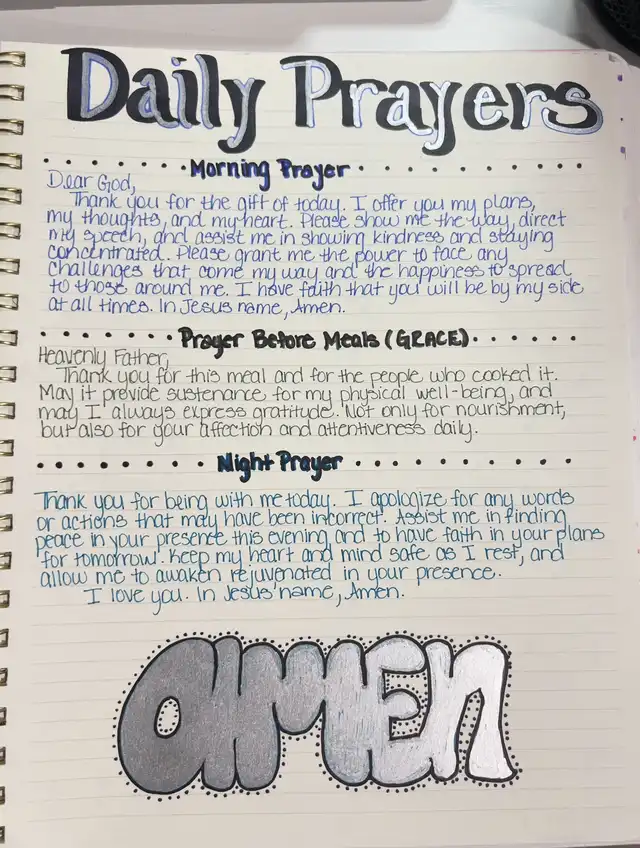 Daily Prayers
Morning Prayer
Dear God,
Thank you for the gift of today. I offer you my plans,
my thoughts, and my heart. Please show me the way, direct
my speech, and assist me in showing kindness and staying
concentrated. Please grant me the power to face any
challenges that come my way and the happiness to spread
to those around me. I have faith that you will be by my side
at all times. In Jesus name, Amen.
Prayer Before Meals (GRACE)
Heavenly Father,
Thank you for this meal and for the people who cooked it.
May it provide sustenance for my physical well-being, and
may I always express gratitude. Not only for nourishment,
but also for your affection and attentiveness daily.
Night Prayer
Thank you for being with me today. I apologize for any words
or actions that may have been incorrect. Assist me in finding
peace in your presence this evening and to have faith in your plans
for tomorrow. Keep my heart and mind safe as I rest, and
allow me to awaken rejuvenated in your presence.
I love you. In Jesus' name, Amen.
AMEN